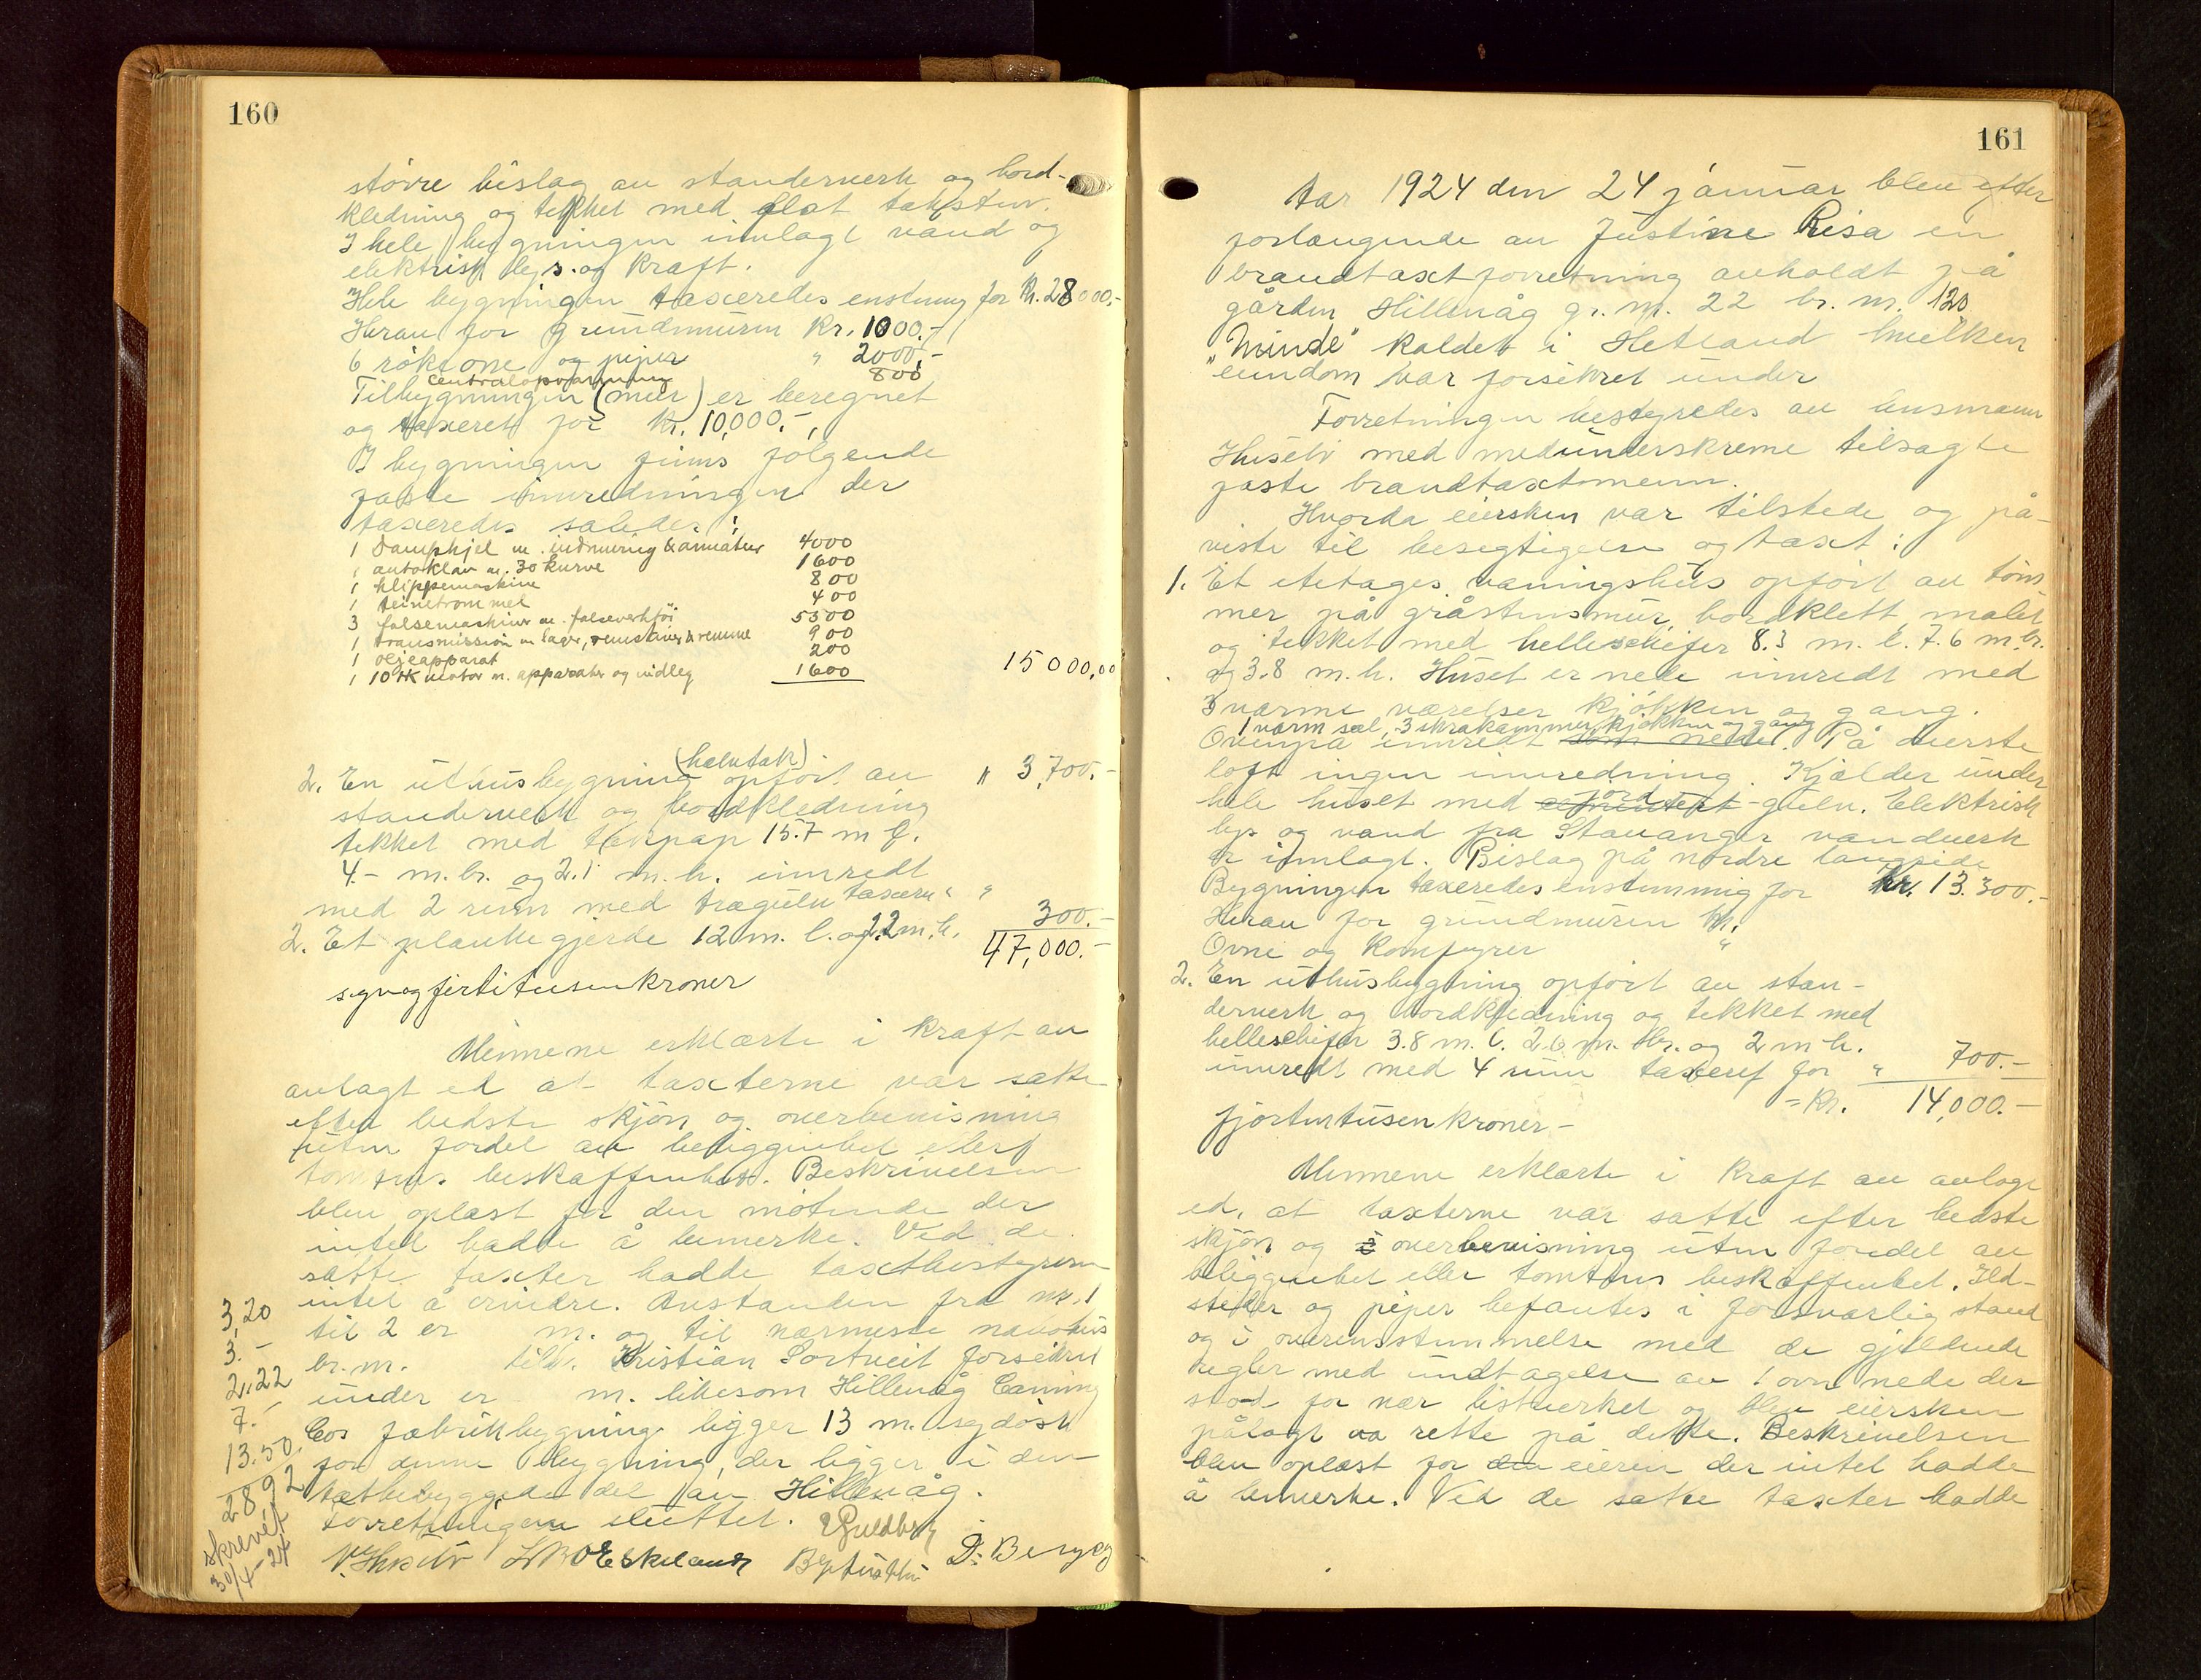 160
større bislag av standerverk og bord-
kledning og tekket med flat takstein.
I hele bygningen innlagt vand og
elektrisk lys og kraft.
Hele bygningen taxeredes enstemmig for Kr. 28000,-
Herav for grundmuren Kr. 1000.-
6 rökeovne og piper " 2000,-
Centralopvarmning 800
Tilbygningen (mur) er beregnet
og taxeret for Kr. 10,000.-,
I bygningen fins følgende
faste innredninger der
taxeredes således:
1 Dampkjel m. indmuring & armatur 4000
1 autoklav m. 30 kurve 1600
1 klippemaskine 800
1 teinetrommel 400
3 falsemaskiner m. falseverktöi 5500
1 transmission m lager, remskiver & remme 900
1 oljeapparat 200
1 10 HK motor m. apparater og indleg 1600 15000,00
2. En uthusbygning (halvtak) opfört av " 3,700.-
standerverk og bordkledning
tekket med tærpap 15.7 m l.
4.- m. br. og 2.1 m. h. innredt
med 2 rum med trægulv taxeres " "
2. Et plankegjerde 12 m. l. og 2.2 m. h. 300.-
47,000.-
syvogførtitusen kroner
Mennene erklærte i kraft av
avlagt ed at taxterne var satte
efter bedste skjøn og overbevisning
uten fordel av beliggenhet eller
tomtens beskaffenhet. Beskrivelsen
blev oplæst for den møtende der
intet hadde å bemerke. Ved de
satte taxter hadde taxtbestyreren
intet å erindre. Avstanden fra nr. 1
til 2 er m. og til nærmeste nabohus
br. nr. tilh. Kristian Sortveit forsikret
under er m. likesom Hillevåg Caning
Cos fabrikbygning ligger 13 m. sydöst
for denne bygning, der ligger i den
tætbebyggede del av Hillevåg.
Forretningen sluttet. Guldberg
V. Husebø Eskeland D. Berge
3,20
3.-
2,22
7.-
13.50
28 92
skrevet
30/4-24
161
Aar 1924 den 24 januar blev efter
forlangende av Justine Risa en
brandtaxtforretning avholdt på
gården Hillevåg gr. nr. 22 br. nr. 120
"Minde" kaldet i Hetland hvilken
eiendom var forsikret under
Forretningen bestyredes av lensmann
Husebø med medunderskrevne tilsagte
faste brandtaxtmenn.
Hvorda eiersken var tilstede og på-
viste til besigtigelse og taxt:
1. Et etetages våningshus opfört av töm
mer på gråstensmur, bordklett, malet
og tekket med helleschifer 8.3 m. l. 7.6 m. br.
og 3.8 m. h. Huset er nede innredt med
3 varme værelser kjøkken og gang.
1 varm sal, 3 skrakammer, kjøkken og gang
Ovenpå innredt som nede. På øverste
loft ingen innredning. Kjælder under
hele huset med cementert jord-gulv. Elektrisk
lys og vand fra Stavanger vandverk
er innlagt. Bislag på nordre langside
Bygningen taxeredes enstemmig for Kr. 13.300.-
Herav for grundmuren Kr.
Ovne og komfyrer "
2. En uthusbygning opfört av stan-
derverk og bordkledning og tekket med
helleschifer 3.8 m. l. 2.6 m. br. og 2 m h.
innredt med 4 rum taxeret for " 700.-
= Kr. 14,000.-
fjortentusen kroner-
Mennene erklærte i kraft av avlagt
ed, at taxterne var satte efter bedste
skjön og i overbevisning uten fordel av
beliggenhet eller tomtens beskaffenhet. Ild-
steder og piper befantes i forsvarlig stand
og i overensstemmelse med de gjeldende
regler med undtagelse av 1 ovn nede der
stod for nær listverket og blev eiersken
pålagt å rette på dette. Beskrivelsen
blev oplæst for den eieren der intet hadde
å bemerke. Ved de satte taxter hadde